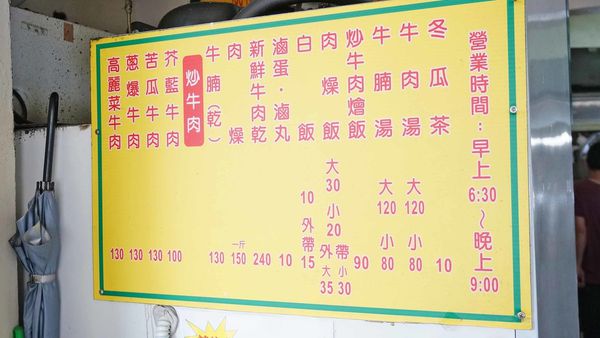 營業時間：早上6:30～晚上9:00
冬瓜茶 10
牛肉湯 大120 小80
牛腩湯 大120 小80
炒牛肉燴飯 90
肉燥飯 大30 小20 外帶 大35 小30
白飯 10 外帶15
滷蛋·滷丸 10
新鮮牛肉乾 240
肉燥 一斤150
牛腩(乾) 130
炒牛肉
芥藍牛肉 100
苦瓜牛肉 130
蔥爆牛肉 130
高麗菜牛肉 130